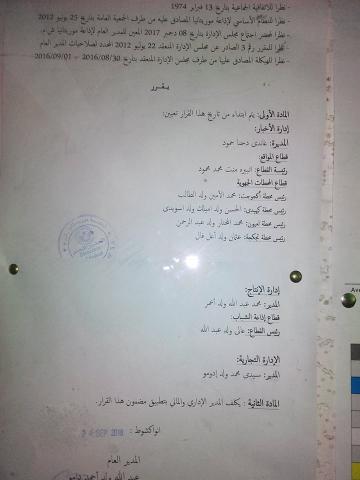 - نظرا للاتفاقية الجماعية بتاريخ 13 فبراير 1974
- نظرا للنظام الأساسي لإذاعة موريتانيا المصادق عليه من طرف الجمعية العامة بتاريخ 25 يونيو 2012
- نظرا لمحضر اجتماع مجلس الإدارة بتاريخ 08 دجمبر 2017 المعين للمدير العام لإذاعة موريتانيا ش.م.
- نظرا للمقرر رقم 3 الصادر عن مجلس الإدارة المنعقد 22 يوليو 2012 المحدد لصلاحيات المدير العام
- نظرا للهيكلة المصادق عليها من طرف مجلس الإدارة المنعقد بتاريخ 2016/08/30 – 2016/09/01
يقرر
المادة الأولى: يتم ابتداء من تاريخ هذا القرار تعيين:
إدارة الأخبار:
المديرة: عائدي دحنا حمود
قطاع المواقع:
رئيسة القطاع: منت محمد محمود
قطاع المحطات الجهوية
رئيس محطة أكجوجت: محمد الأمين ولد الطالب
رئيس محطة كيهيدي: الحسن ولد امبارك ولد اسويدي
رئيس محطة لعيون: محمد المختار ولد عبد الرحمن
رئيس محطة تجكجة: عثمان ولد أعل فال
إدارة الإنتاج:
المدير: محمد عبد الله ولد أحمر
قطاع إذاعة الشباب:
رئيس القطاع: عالي ولد عبد الله
الإدارة التجارية:
المدير: سيدي محمد ولد إدومو
المادة الثانية : يكلف المدير الإداري والمالي بتطبيق مضمون هذا القرار.
انواكشوط : 24 SEP 2018
المدير العام
عبد الله ولد أحمد دامو